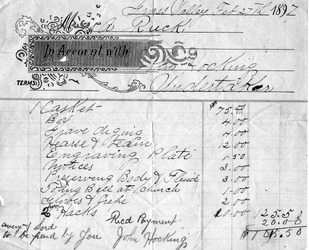 Grass Valley Feb 27th 1897
M A Ruck
In Account with
John Hocking
Undertaker
TERMS:
1 Casket $75.00
Box 4.00
Grave diging 4.00
Hearse & Team 12.00
Engraving Plate 1.50
Notices 3.00
Preserving Body & Fluid
Toling Bell at Church 1.00
Gloves & 2.00
Hacks 10.00
Recd Payment
to be paid by you John Hocking